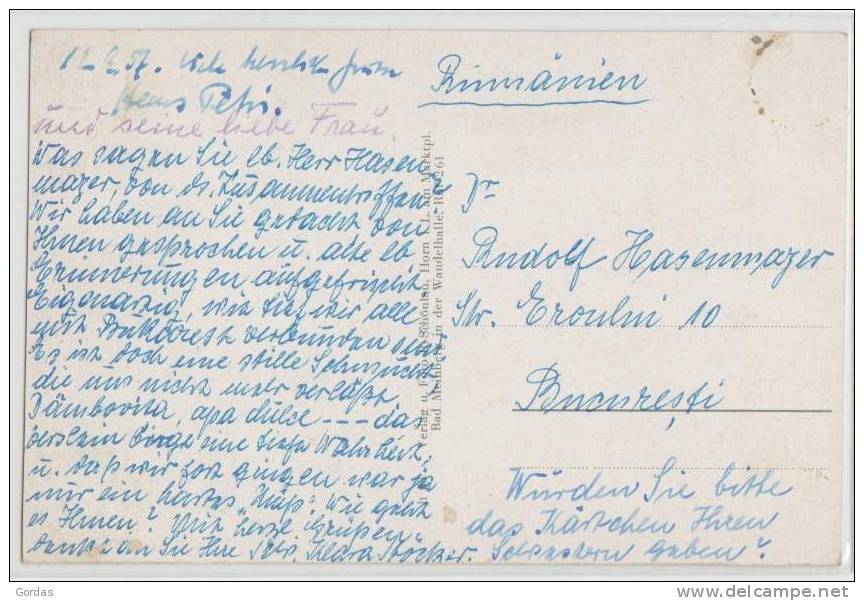 11.9.57. Viele herzliche Grüße
Hans Petri.
und seine liebe Frau.
Was sagen Sie lb. Herr Hasen
mayer, von ds. Zusammentreffen?
Wir haben an Sie gedacht von
Ihnen gesprochen u. alte lb
Erinnerungen aufgefrischt
Eigenartig, wie tief wir alle
mit Bukarest verbunden sind
Es ist doch eine stille Sehnsucht
die uns nicht mehr verläßt
Dâmbovita, apa dulce --- das
verslein birgt eine tiefe Wahrheit,
u. daß wir fort gingen war ja
nur ein hartes "Muß". Wie geht
es Ihnen? Mit herzl. Grüßen
denkt an Sie Ihre Klara Stöcker.
Verlag u. Foto Schönlau, Horn i. L. am Marktpl.
Bad Meinberg in der Wandelhalle. Ruf 261
Rumänien
Dr
Rudolf Hasenmayer
Str. Eroului 10
Bucureşti
Würden Sie bitte
das Kärtchen Ihren
Schwestern geben?
Gordas
delcampe.net